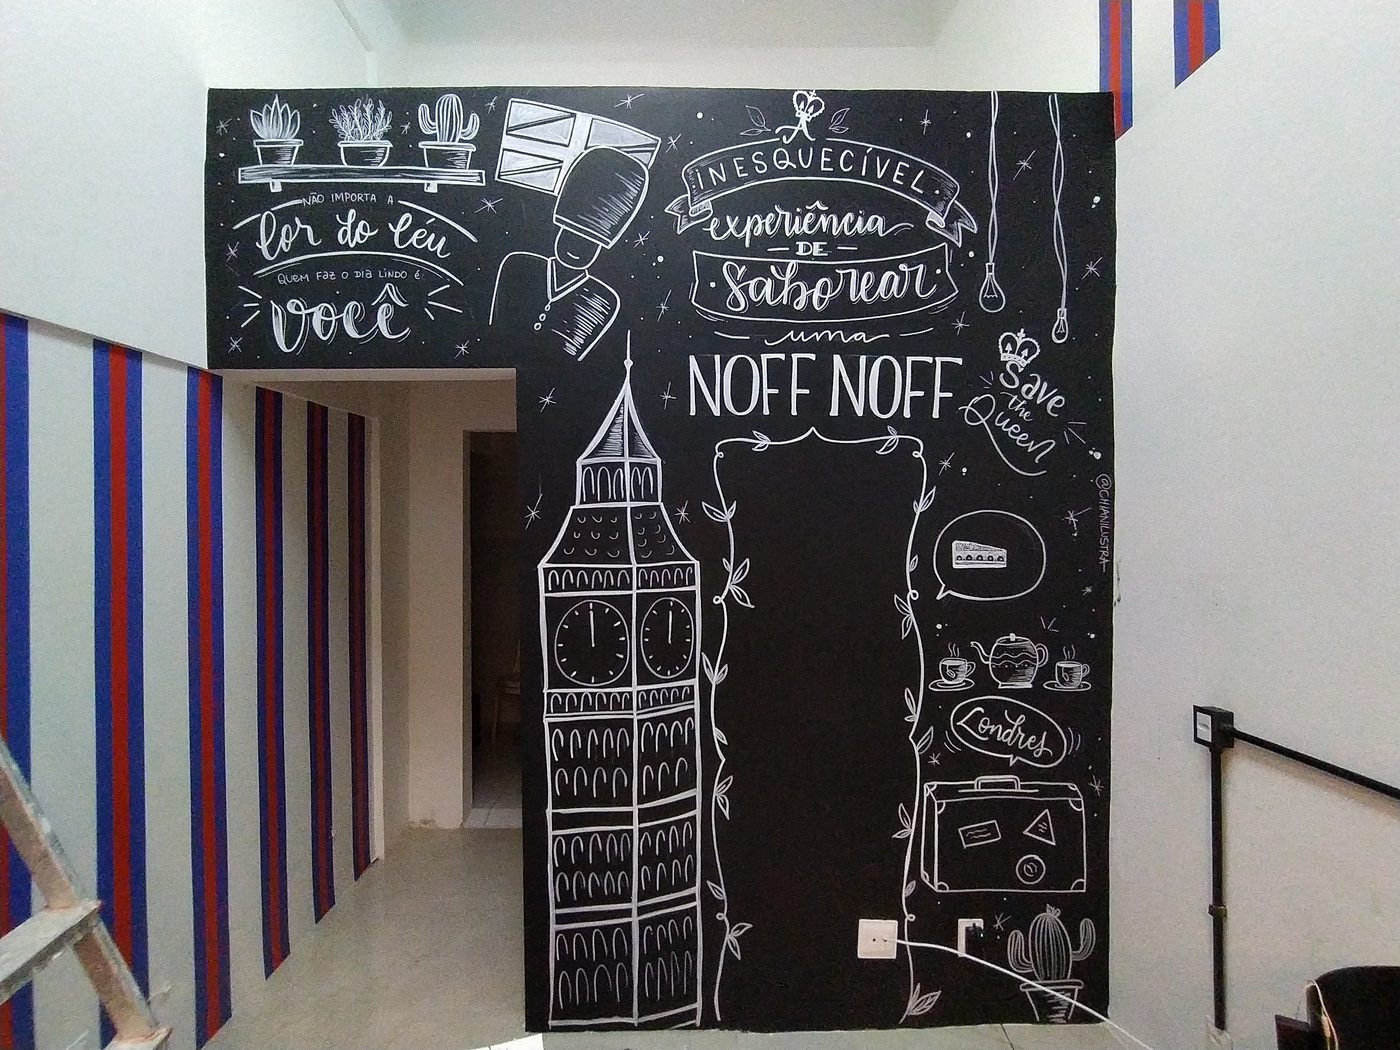 NÃO IMPORTA A
Cor do Céu
QUEM FAZ O DIA LINDO É:
Você
A
INESQUECÍVEL
experiência
DE
Saborear
uma
NOFF NOFF
Save
the
Queen
@CHIANILUSTRA
Londres